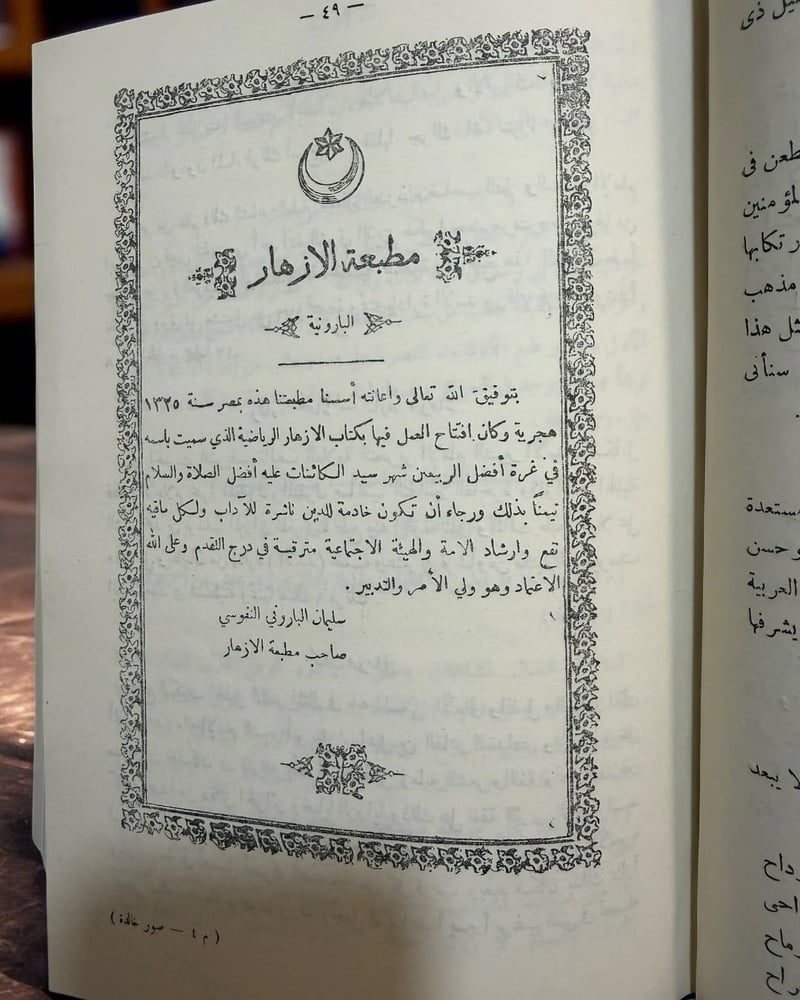 — ٤٩ —
مطبعة الازهار
البارونية
بتوفيق الله تعالى واعانته أسسنا مطبعتنا هذه بمصر سنة ١٣٢٥
هجرية وكان افتتاح العمل فيها بكتاب الازهار الرياضية الذي سميت باسمه
في غرة أفضل الربيعين شهر سيد الكائنات عليه أفضل الصلاة والسلام
تيمناً بذلك ورجاء أن تكون خادمة للدين ناشرة للآداب ولكل مافيه
نفع وارشاد الامة والهيئة الاجتماعية مترقية في درج التقدم وعلى الله
الاعتماد وهو ولي الأمر والتدبير .
سليمان الباروني النفوسي
صاحب مطبعة الازهار
( م ٤ — صور خالدة )
ذى
طعن فى
لمؤمنين
مذهب
هذا
سنأتى
وحسن
العربية
يشرفها
لا يبعد